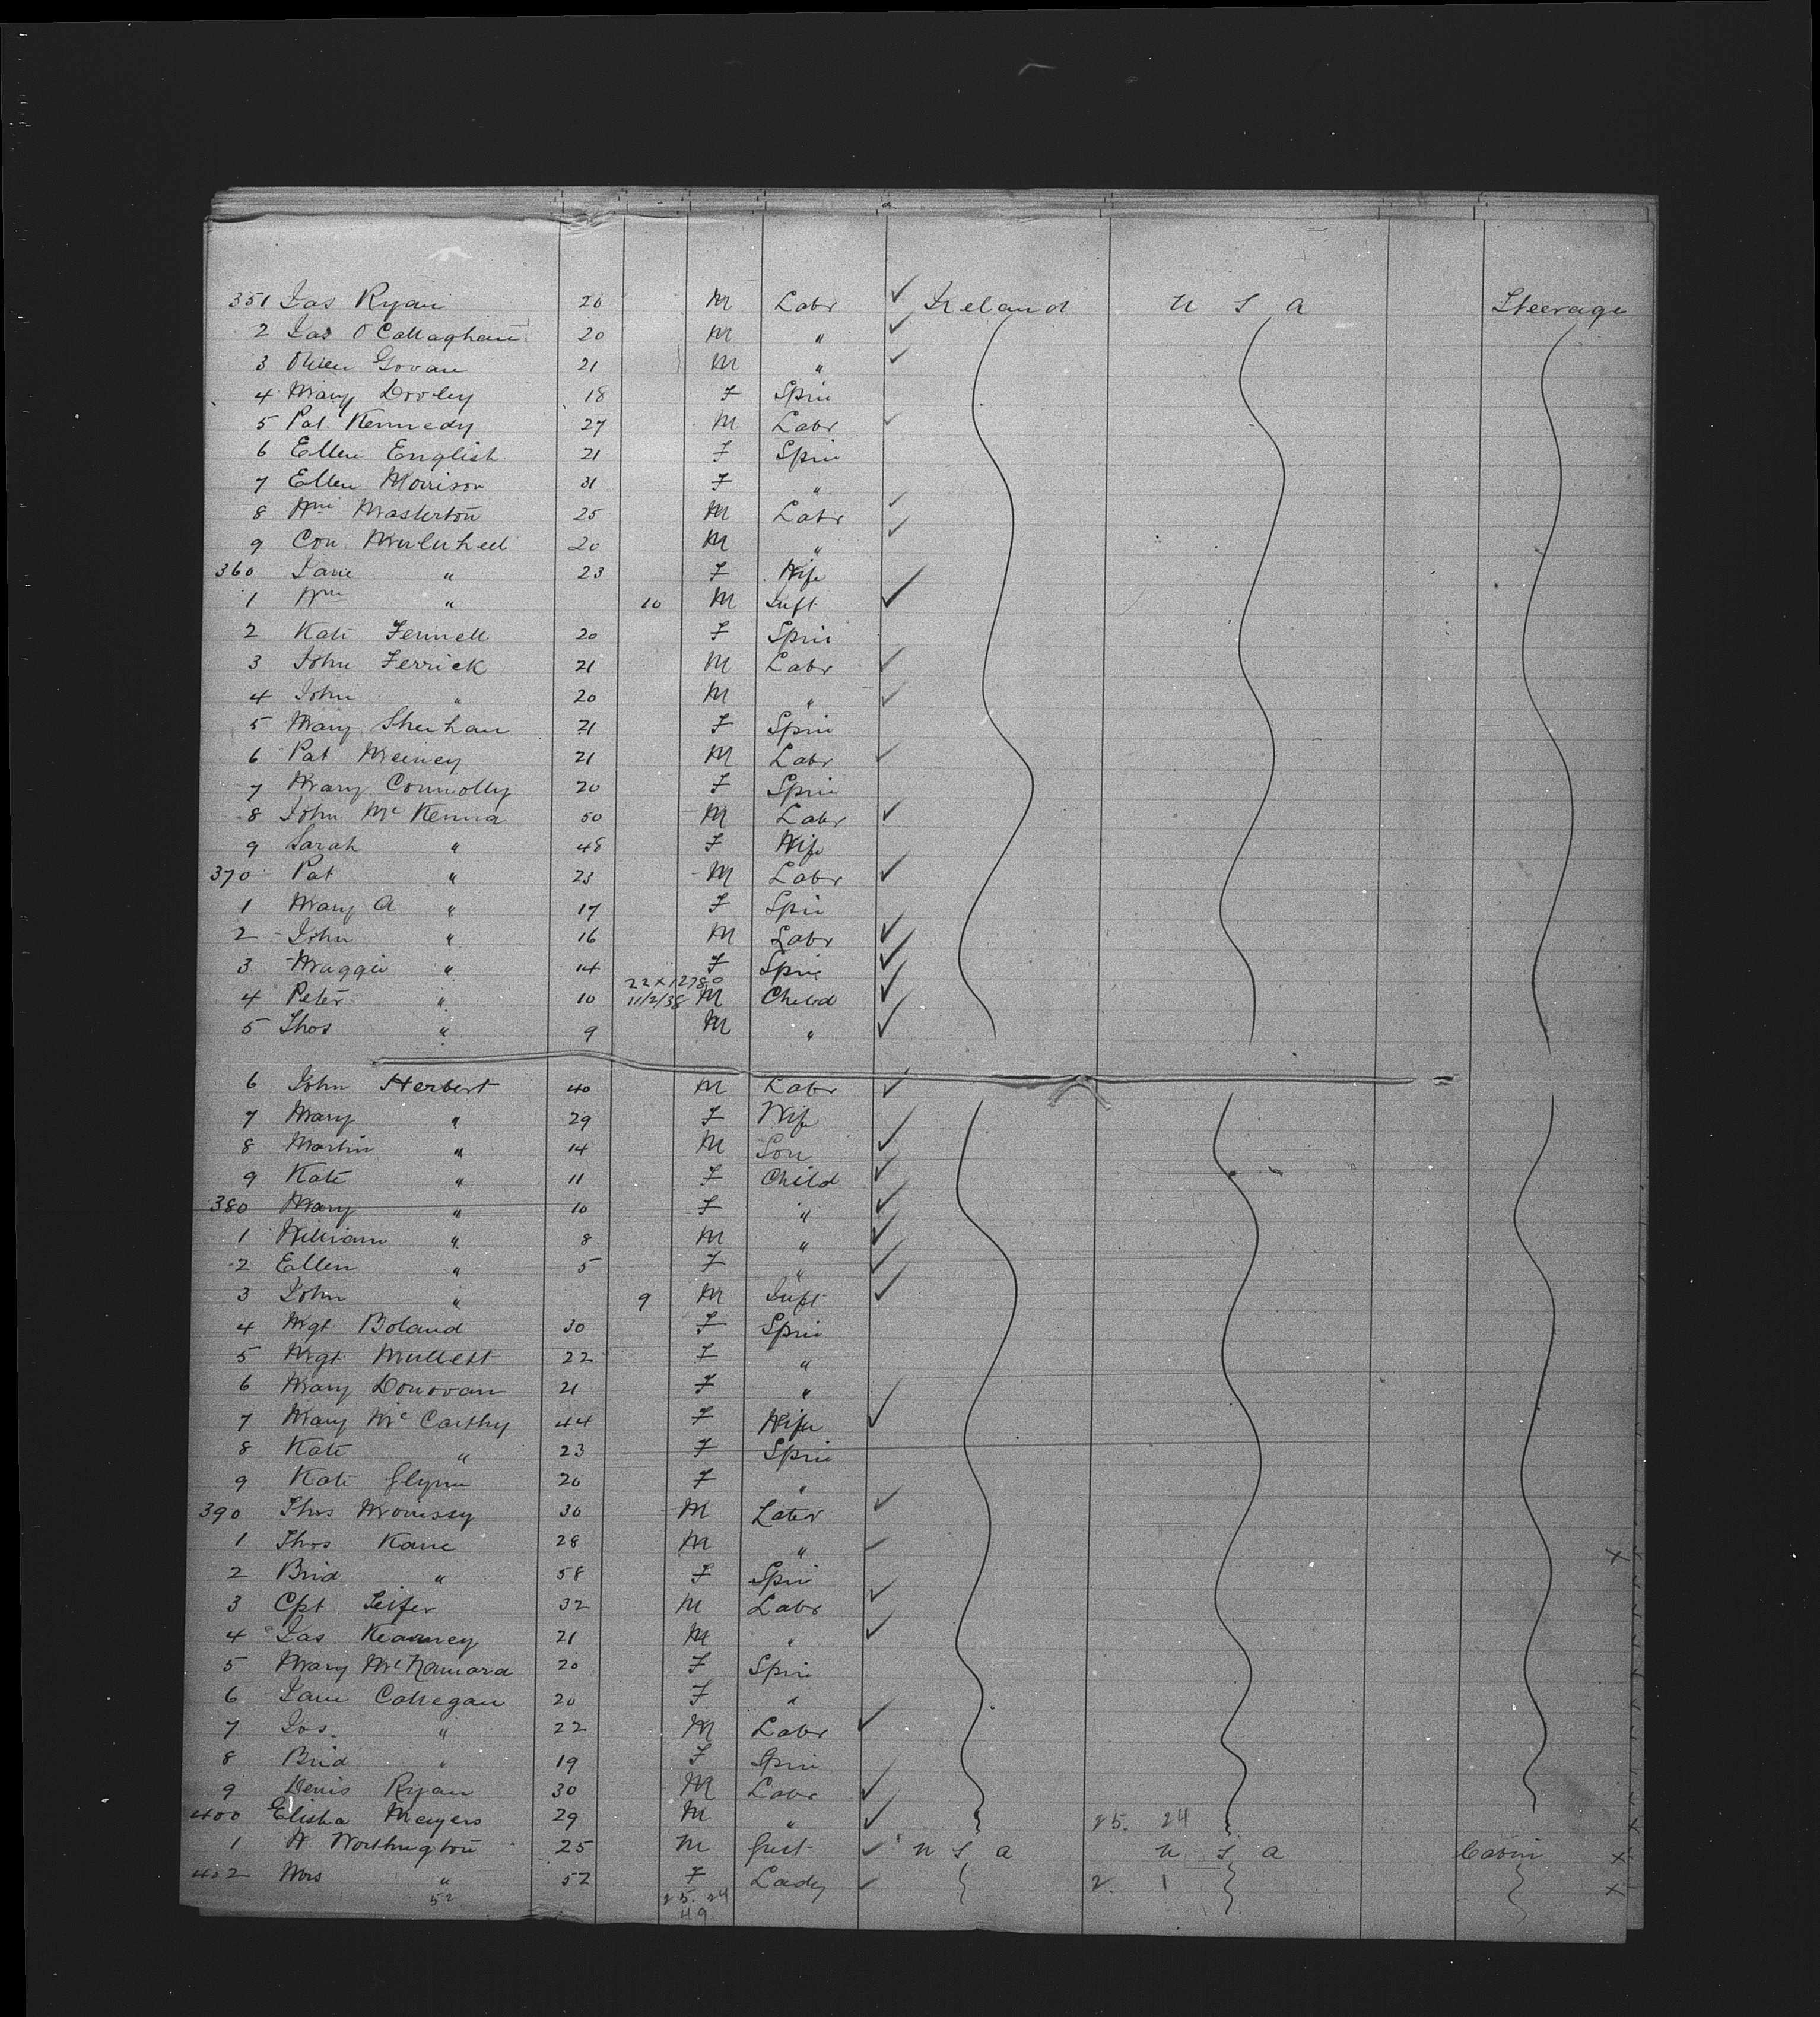 351 Jas Ryan 20 M Labr ✓ Ireland U S A Steerage
2 Jas O'Callaghan 20 M " ✓
3 Owen Govan 21 M " ✓
4 Mary Dooley 18 F Spin
5 Pat Kennedy 27 M Labr ✓
6 Ellen English 21 F Spin
7 Ellen Morrison 31 F "
8 Wm Masterton 25 M Labr ✓
9 Con 20 M " ✓
360 Jane " 23 F Wife
1 Wm " 10 M Inft ✓
2 Kate Fennell 20 F Spin
3 John Ferrick 21 M Labr ✓
4 John " 20 M " ✓
5 Mary Sheehan 21 F Spin
6 Pat 21 M Labr ✓
7 Mary Connolly 20 F Spin
8 John McKenna 50 M Labr ✓
9 Sarah " 48 F Wife
370 Pat " 23 M Labr ✓
1 Mary A " 17 F Spin
2 John " 16 M Labr ✓
3 Maggie " 14 F Spin ✓
22 X 12780
4 Peter " 10 11/2/38 M Child ✓
5 Thos " 9 M " ✓
6 John Herbert 40 M Labr ✓
7 Mary " 29 F Wife
8 Martin " 14 M Son ✓
9 Kate " 11 F Child ✓
380 Mary " 10 F " ✓
1 William " 8 M " ✓
2 Ellen " 5 F " ✓
3 John " 9 M Inft ✓
4 Mgt Boland 30 F Spin
5 Mgt Mullett 22 F "
6 Mary Donovan 21 F "
7 Mary McCarthy 44 F Wife ✓
8 Kate " 23 F Spin
9 Kate Glynn 20 F "
390 Thos 30 M Labr ✓
1 Thos Kane 28 M " ✓ X
2 Brid " 58 F Spin
3 Cpt Leifer 32 M Labr ✓
4 Jas Kearney 21 M " ✓
5 Mary McNamara 20 F Spin
6 Jane Callegan 20 F "
7 Jos " 22 M Labr ✓
8 Brid " 19 F Spin
9 Denis Ryan 30 M Labr ✓
400 Elisha Meyers 29 M " ✓ 25. 24 X
1 W. Worthington 25 M Gent ✓ U S A U S A Cabin X
402 Mrs " 52 F Lady ✓ 2. 1 X
52 25. 24
49